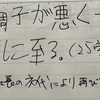 調子が悪く
に至る。(25字
長の方針により再び